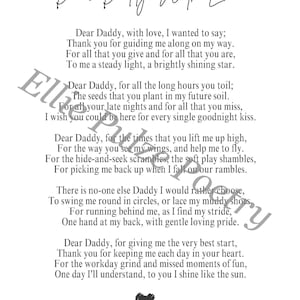 Dear Daddy, with love, I wanted to say;
Thank you for guiding me along on my way.
For all that you give and for all that you are,
To me a steady light, a brightly shining star.
Dear Daddy, for all the long hours you toil;
The seeds that you plant in my future soil.
For all your late nights and for all that you miss,
I wish you could be here for every single goodnight kiss.
Dear Daddy, for the times that you lift me up high,
For the way you see my wings, and help me to fly.
For the hide-and-seek scrambles, the soft play shambles,
For picking me back up when I fall on our rambles.
There is no-one else Daddy I would rather choose,
To swing me round in circles, or lace my muddy shoes.
For running behind me, as I find my stride,
One hand at my back, with gentle loving pride.
Dear Daddy, for giving me the very best start,
Thank you for keeping me each day in your heart.
For the workday grind and missed moments of fun,
One day I'll understand, to you I shine like the sun.
Poetry